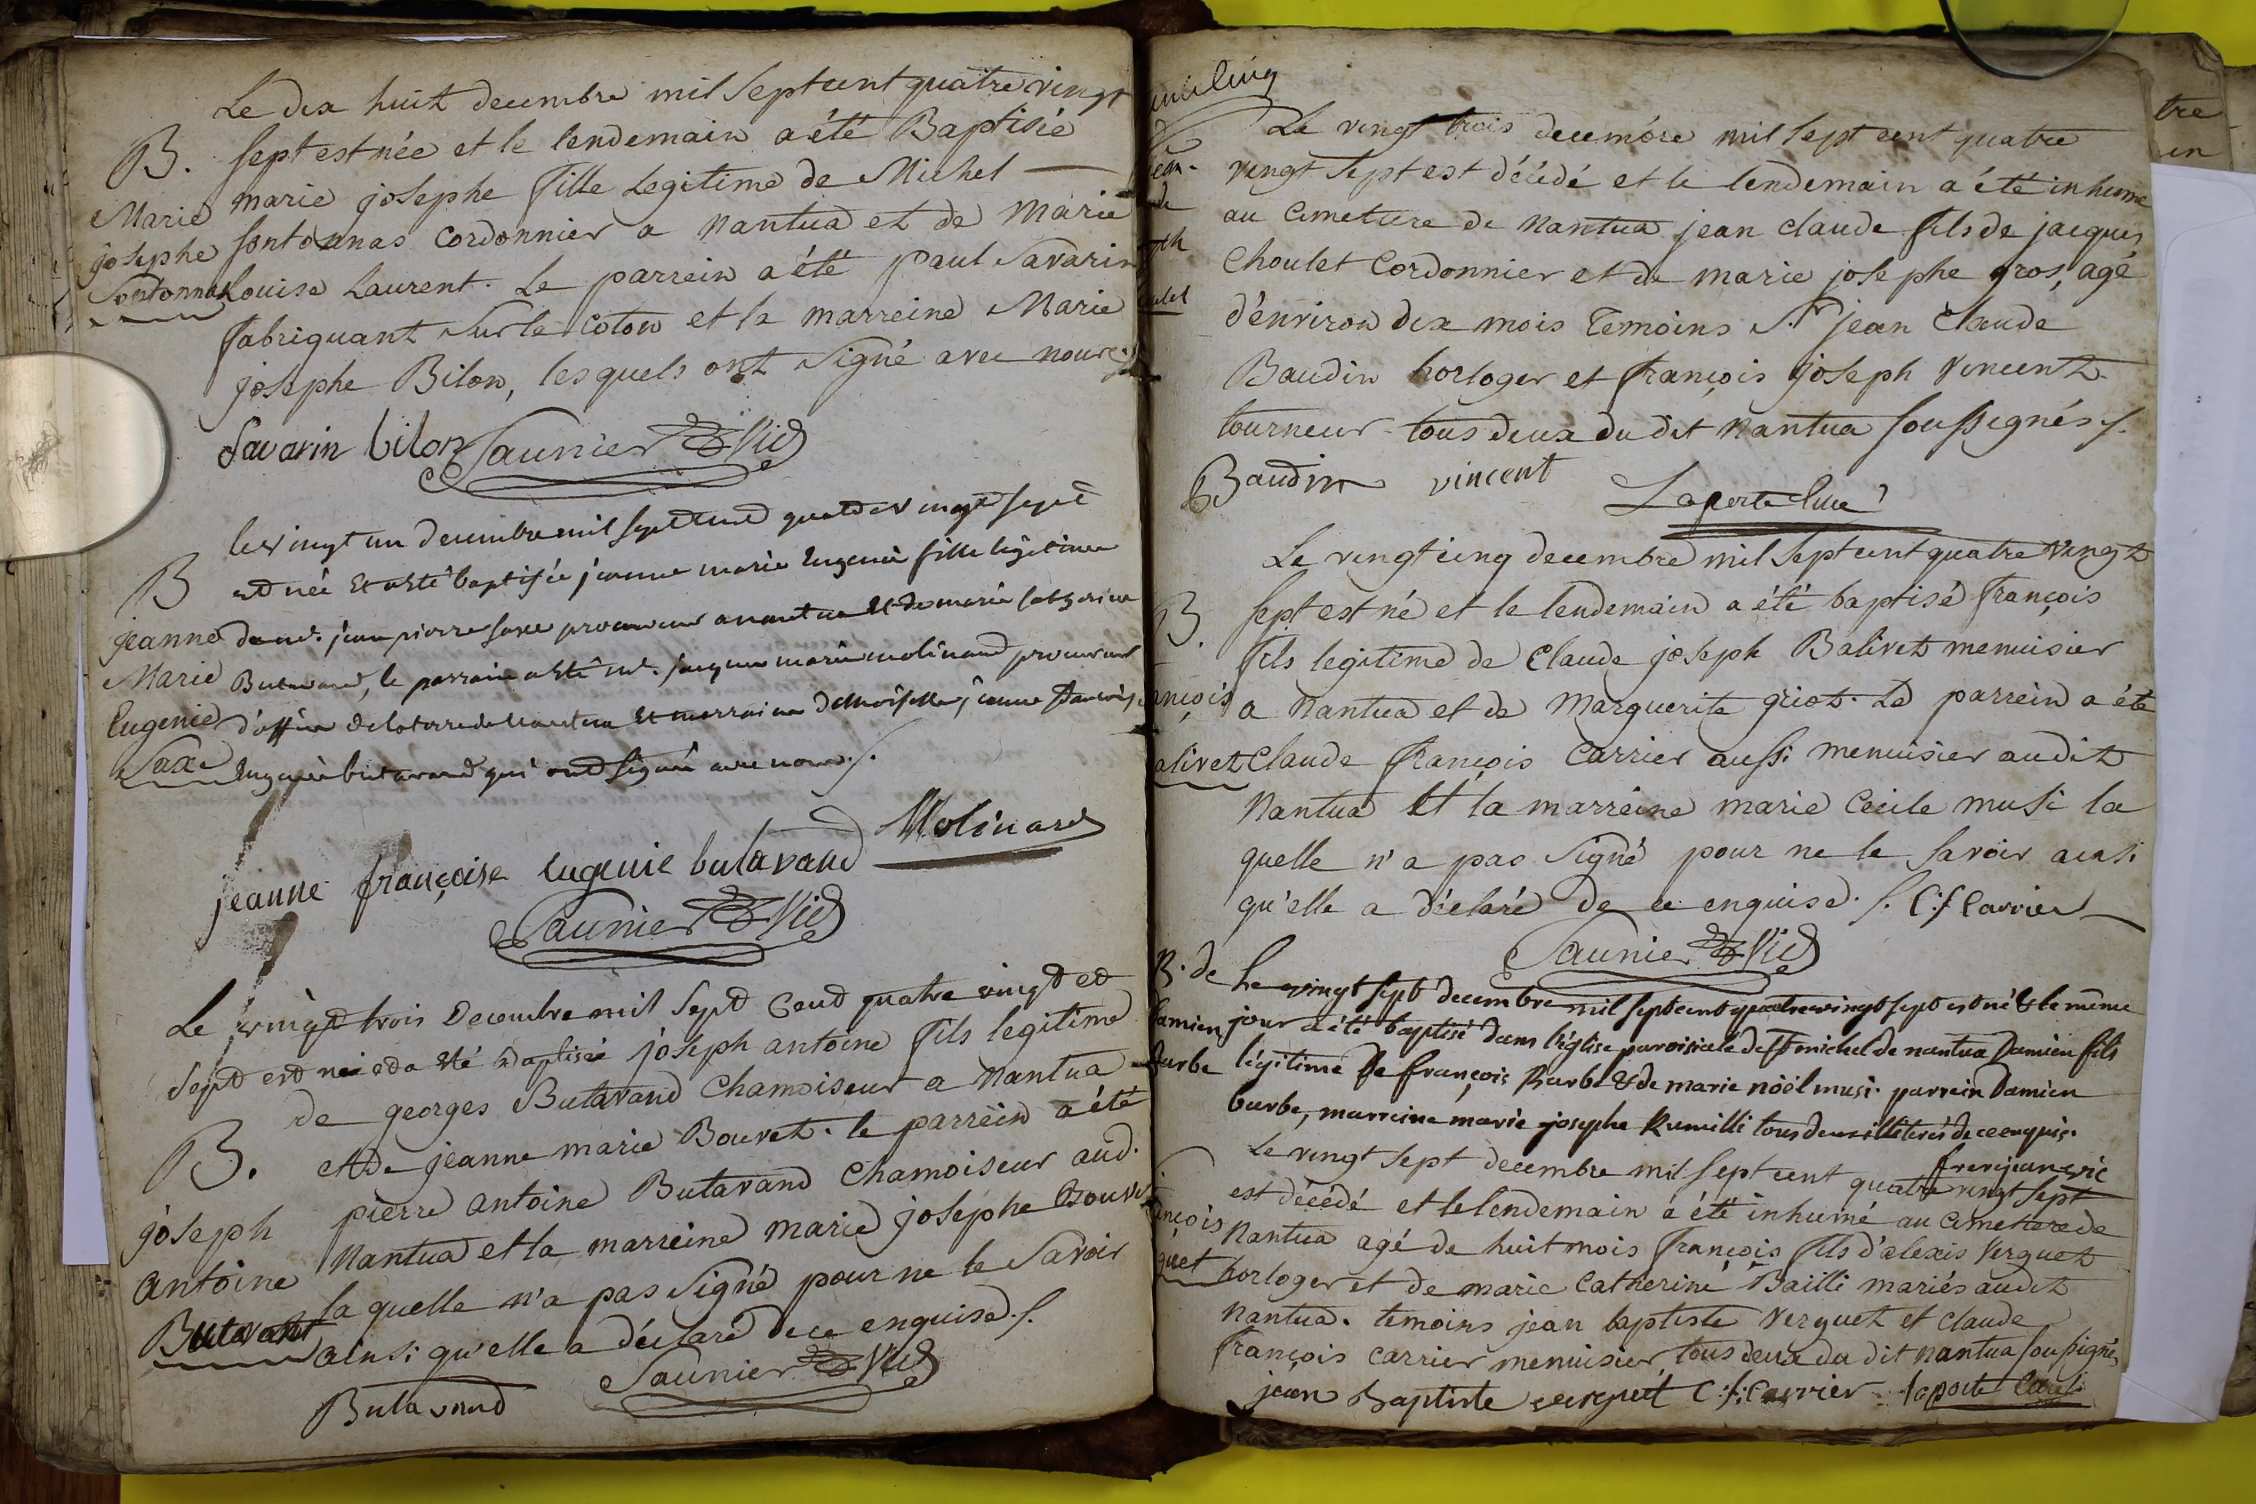 Le dix huit decembre mil sept cent quatre vingt
B. sept est née et le lendemain a été Baptisée
Marie marie josephe fille Legitime de Michel
josephe fontonnas Cordonnier a Nantua et de Marie
Fontonnas Louise Laurent. Le parrein a été Paul Savarin
fabriquant sur le Coton et la marreine Marie
josephe Bilon, lesquels ont signé avec nous
Savarin bilon Saunier Vic
le vingt un decembre mil sept cent quatre vingt sept
B est née et a été baptisée jeanne marie Eugenie fille legitime
jeanne de me. jean pierre saxe procureur a nantua et de marie
Marie Butavand, le parrain a été me. jacques marie molinard procureur
Eugenie d'office de la terre de nantua et marraine demoiselle jeanne
Saxe Eugenie butavand qui ont signé avec nous ./.
Molinard
jeanne françoise Eugenie butavand
Saunier Vic
Le vingt trois Decembre mil Sept Cent quatre vingt et
Sept est né et a été Baptisé joseph antoine fils legitime
de georges Butavand Chamoiseur a Nantua
B. et de jeanne marie Bouvet. le parrein a été
pierre antoine Butavand Chamoiseur aud.
joseph Nantua et la marreine marie josephe Bouvet
antoine la quelle n'a pas Signé pour ne le Savoir
Butavant ainsi qu'elle a déclaré de ce enquise ./.
Butavand Saunier Vic
Le vingt trois decembre mil sept cent quatre
jean- vingt sept est décédé et le lendemain a été inhumé
au Cimetiere de Nantua jean claude fils de jacques
Choulet Cordonnier et de marie josephe gros, agé
d'environ dix mois Temoins Sr. jean Claude
Baudin horloger et françois joseph Vincent
tourneur tous deux du dit Nantua soussignés ./.
Baudin vincent
Laporte Curé
Le vingt cinq decembre mil sept cent quatre vingt
B. sept est né et le lendemain a été baptisé François
fils legitime de Claude joseph Balivet menuisier
ançois a Nantua et de Marguerite griot. Le parrein a été
alivet Claude François Carrier aussi menuisier audit
Nantua Et la marreine marie Cecile musi la
quelle n'a pas Signé pour ne le savoir ainsi
qu'elle a déclaré de ce enquise ./. C. f. Carrier
Saunier Vic
B. de Le vingt sept decembre mil sept cent quatre vingt sept est né & le même
Damien jour a été baptisé dans l'église paroisiale de St michel de nantua Damien fils
Barbe légitime de françois Barbe & de marie noël musi. parrein Damien
barbe, marreine marie josephe Rumilli tous deux illiterés de ce enquis.
frerejean vic
Le vingt sept decembre mil sept cent quatre vingt sept
est décédé et le lendemain a été inhumé au Cimetiere de
ançois Nantua agé de huit mois françois fils d'alexis Verguet
guet horloger et de marie Catherine Bailli mariés audit
Nantua. temoins jean baptiste Verguet et claude
François Carrier menuisier tous deux du dit nantua soussignés
jean Baptiste verguet C. f. Carrier Laporte Curé